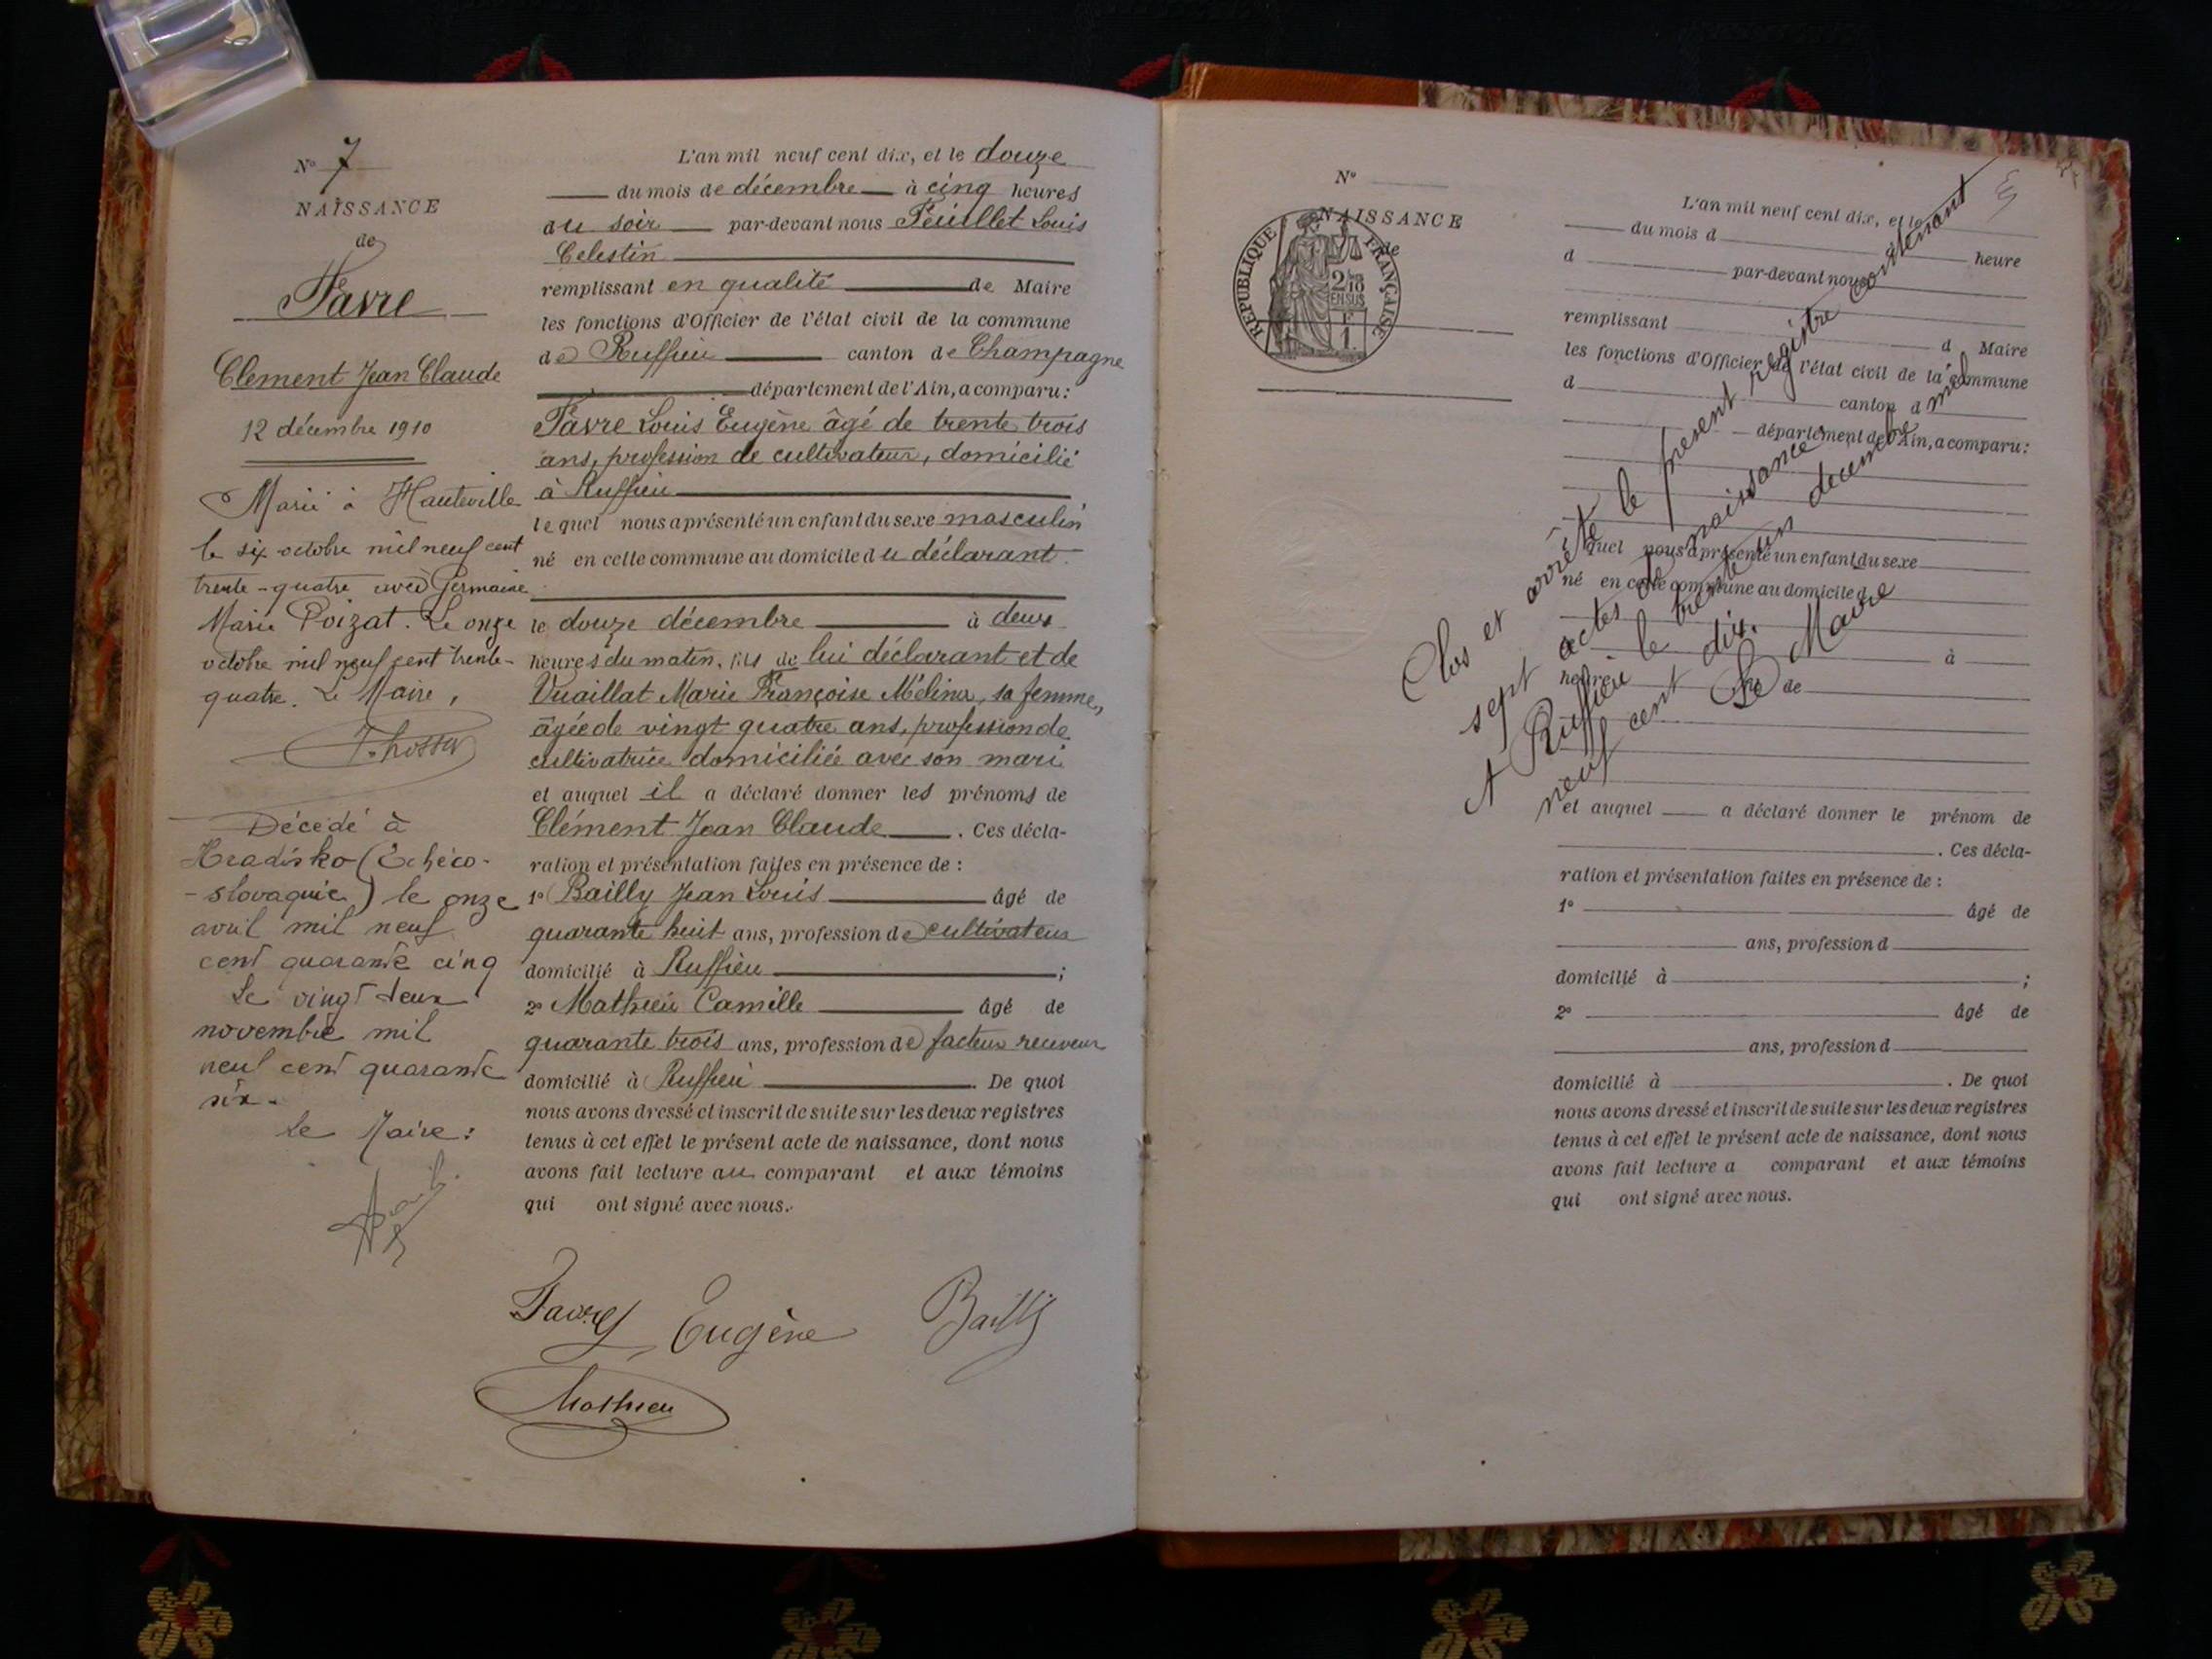 N° 7
NAISSANCE
de
Favre
Clément Jean Claude
12 décembre 1910
Marié à Hauteville
le six octobre mil neuf cent
trente-quatre avec Germaine
Marie Poizat. Le onze
octobre mil neuf cent trente-
quatre. Le Maire,
Décédé à
Hradisko (Tchéco-
-slovaquie) le onze
avril mil neuf
cent quarante cinq
Le vingt deux
novembre mil
neuf cent quarante
six.
Le Maire:
L'an mil neuf cent dix, et le douze
du mois de décembre à cinq heures
du soir par-devant nous Feuillet Louis
Celestin
remplissant en qualité de Maire
les fonctions d'Officier de l'état civil de la commune
de Ruffieu canton de Champagne
département de l'Ain, a comparu:
Favre Louis Eugène âgé de trente trois
ans, profession de cultivateur, domicilié
à Ruffieu
lequel nous a présenté un enfant du sexe masculin
né en cette commune au domicile du déclarant
le douze décembre à deux
heures du matin, fils de lui déclarant et de
Vuaillat Marie Françoise Mélina, sa femme,
âgée de vingt quatre ans, profession de
cultivatrice domiciliée avec son mari
et auquel il a déclaré donner les prénoms de
Clément Jean Claude. Ces décla-
ration et présentation faites en présence de:
1° Bailly Jean Louis âgé de
quarante huit ans, profession de cultivateur
domicilié à Ruffieu;
2° Mathieu Camille âgé de
quarante trois ans, profession de facteur receveur
domicilié à Ruffieu. De quoi
nous avons dressé et inscrit de suite sur les deux registres
tenus à cet effet le présent acte de naissance, dont nous
avons fait lecture au comparant et aux témoins
qui ont signé avec nous.
Favre Eugène Bailly
Mathieu
N°
NAISSANCE
de
RÉPUBLIQUE FRANÇAISE
2/10
EN SUS
F
1
L'an mil neuf cent dix, et le
du mois d
heure
d par-devant nous
remplissant d Maire
les fonctions d'Officier de l'état civil de la commune
d canton d
département de l'Ain, a comparu:
quel nous a présenté un enfant du sexe
né en cette commune au domicile d
à
heure fils de
et auquel a déclaré donner le prénom de
. Ces décla-
ration et présentation faites en présence de:
1° âgé de
ans, profession d
domicilié à ;
2° âgé de
ans, profession d
domicilié à . De quoi
nous avons dressé et inscrit de suite sur les deux registres
tenus à cet effet le présent acte de naissance, dont nous
avons fait lecture a comparant et aux témoins
qui ont signé avec nous.
Clos et arrêté le présent registre contenant
sept actes de naissance
A Ruffieu le trente un décembre mil
neuf cent dix.
Le Maire